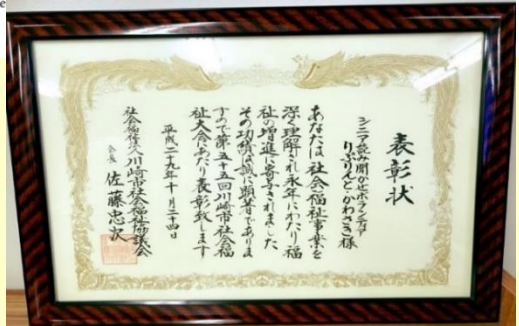 e
表彰状
シニア読み聞かせボランティア
りぷりんと・かわさき様
あなたは社会福祉事業を
深く理解され永年にわたり福
祉の増進に寄与されました
その功績は誠に顕著でありま
すので第五十五回川崎市社会福
祉大会にあたり表彰致します
平成二十九年十月二十四日
社会福祉法人川崎市社会福祉協議会
会長 佐藤忠次